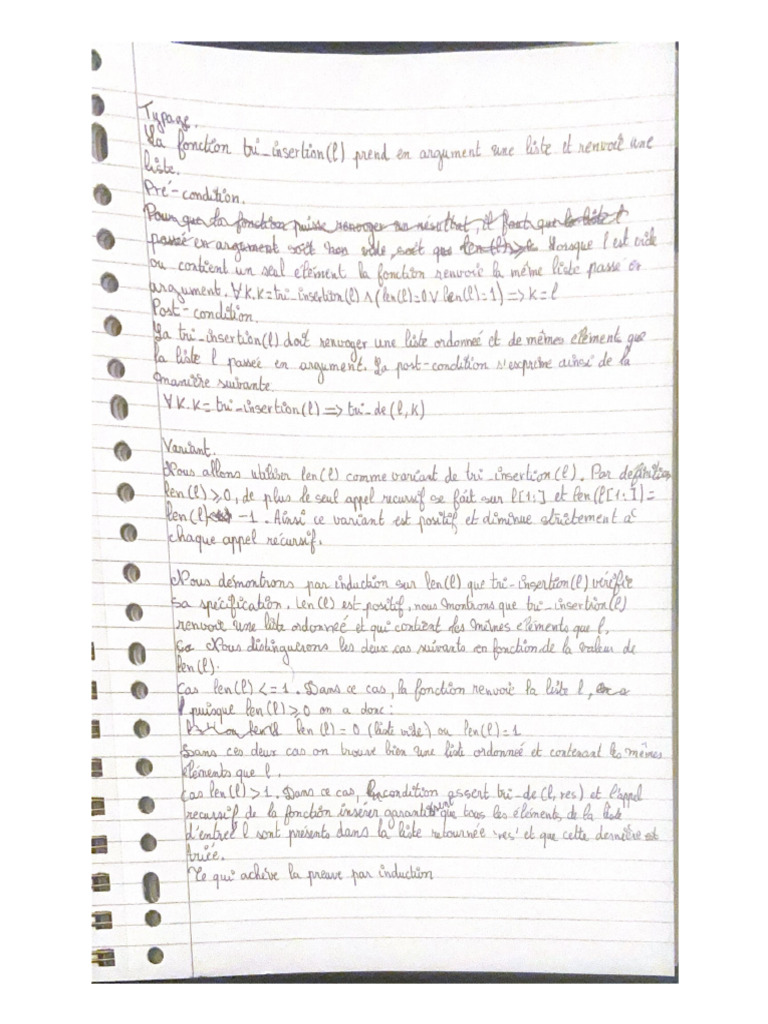 Typage.
La fonction tri_insertion(l) prend en argument une liste et renvoie une
liste.
Pré-condition.
Pour que la fonction puisse renvoyer un résultat, il faut que la liste l
passé en argument soit non vide, soit que len(l)> lorsque l est vide
ou contient un seul élément la fonction renvoie la même liste passé en
argument. ∀K.K=tri_insertion(l) ∧ (len(l)=0 ∨ len(l)=1) => K=l
Post-condition.
La tri_insertion(l) doit renvoyer une liste ordonneé et de mêmes elements que
la liste l passeé en argument. La post-condition s'exprime ainsi de la
manière suivante
∀K.K= tri_insertion(l) => tri_de(l,K)
Variant.
Nous allons utiliser len(l) comme variant de tri_insertion(l). Par definition
len(l) ⩾0, de plus le seul appel recursif se fait sur l[1:] et len(l[1:])=
len(l) -1. Ainsi ce variant est positif, et diminue strictement à
chaque appel récursif.
Nous démontrons par induction sur len(l) que tri-insertion(l) vérifie
sa spécification. Len(l) est positif, nous montrons que tri_insertion(l)
renvoie une liste ordonneé et qui contient des mêmes elements que l.
Nous distinguerons les deux cas suivants en fonction de la valeur de
len(l).
Cas len(l) <= 1. Dans ce cas, la fonction renvoie la liste l,
puisque len(l) ⩾ 0 on a donc:
len(l) = 0 (liste vide) ou len(l)=1
Dans ces deux cas on trouve bien une liste ordonneé et contenant les mêmes
élements que l.
Cas len(l) > 1. Dans ce cas, condition assert tri-de(l,res) et l'appel
recursif de la fonction inserer garantissent que tous les elements de la liste
d'entreé l sont présents dans la liste retournée 'res' et que cette dernière est
triée.
Ce qui achève la preuve par induction